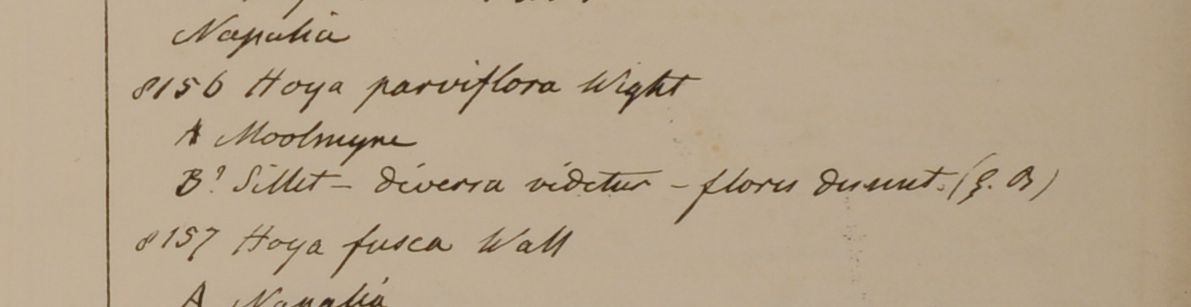 Napalia
8156 Hoya parviflora Wight
A Moolmyne
B? Sillet – diversa videtur – flores desunt. (G. B)
8157 Hoya fusca Wall
A Napalia